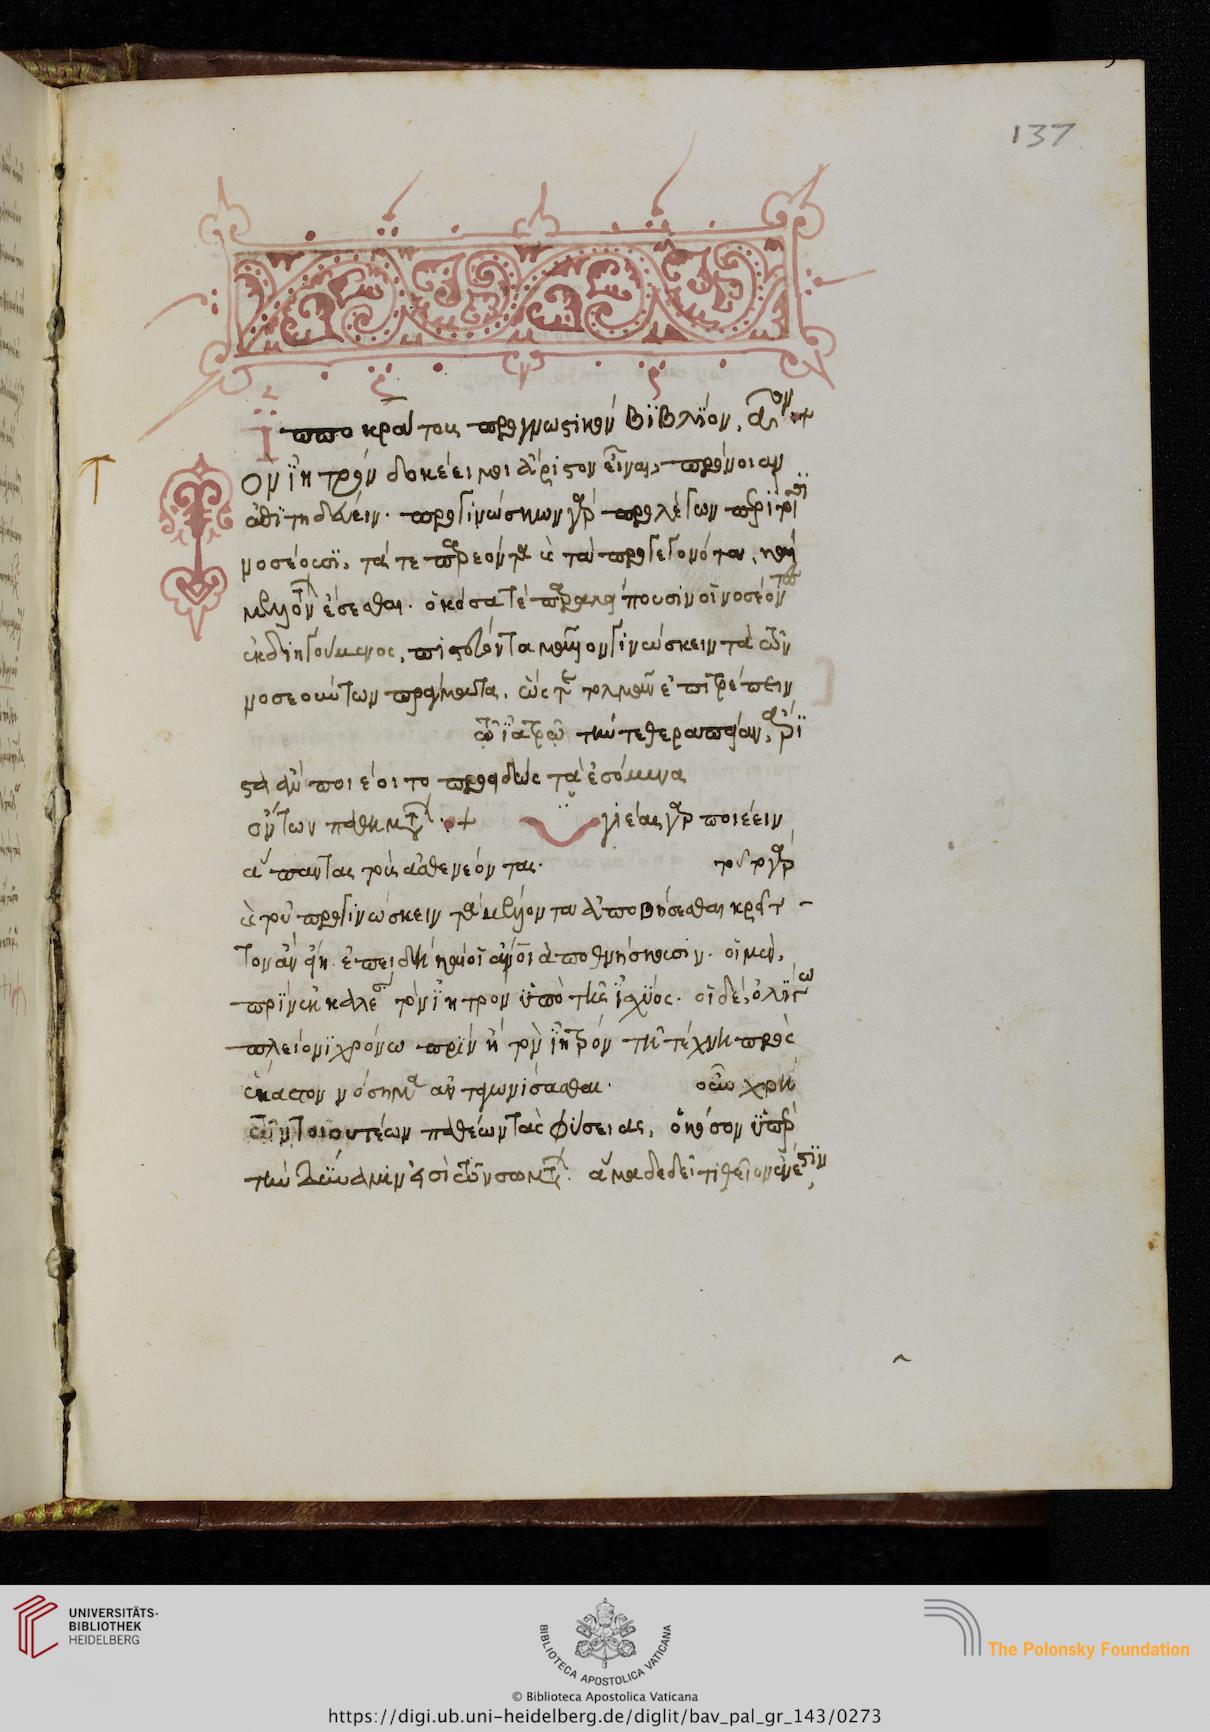 137
Ἱπποκράτους προγνωστικὸν βιβλίον, αον
Τὸν ἰητρὸν δοκέει μοι ἄριστον εἶναι, πρόνοιαν
προγινώσκων γὰρ προλέγων
νοσέουσι, τά τε παρεόντα καὶ τὰ προγεγονότα, καὶ
μέλλοντα ἔσεσθαι. ὁκόσα τε παραλείπουσιν οἱ νοσέοντες
ἐκδιηγούμενος, μᾶλλον γινώσκειν τὰ τῶν
νοσεόντων πράγματα, ὡς τε τολμᾶν ἐπιτρέπειν
τῷ ἰατρῷ τήν τε θεραπείαν, ἄρι
στα ἂν ποιέοιτο προειδὼς τὰ ἐσόμενα
παθημάτων. ὑγιέας γὰρ ποιέειν
ἅπαντας τοὺς ἀσθενέοντας. τοῦτο γὰρ
καὶ τοῦ προγινώσκειν τὰ μέλλοντα ἀποβήσεσθαι
ἐπειδὴ οἱ ἄνοι ἀποθνήσκουσιν. οἱ μὲν,
πρὶν καλέσαι τὸν ἰητρὸν ὑπὸ τῆς ἰσχύος. οἱ δὲ, ὀλίγω
πλείονι χρόνω πρὶν ἢ τὸν ἰητρὸν τῇ τέχνῃ πρὸς
ἕκαστον νόσημα ἀνταγωνίσασθαι. οὖν χρὴ
τῶν τοιουτέων παθέων τὰς φύσειας, ὁκόσον ὑπὲρ
τὴν δύναμίν εἰσι τῶν σωμάτων. ἅμα δὲ δεῖ τι θεῖον ἔνεστιν
UNIVERSITÄTS-
BIBLIOTHEK
HEIDELBERG
BIBLIOTECA APOSTOLICA VATICANA
The Polonsky Foundation
© Biblioteca Apostolica Vaticana
https://digi.ub.uni-heidelberg.de/diglit/bav_pal_gr_143/0273